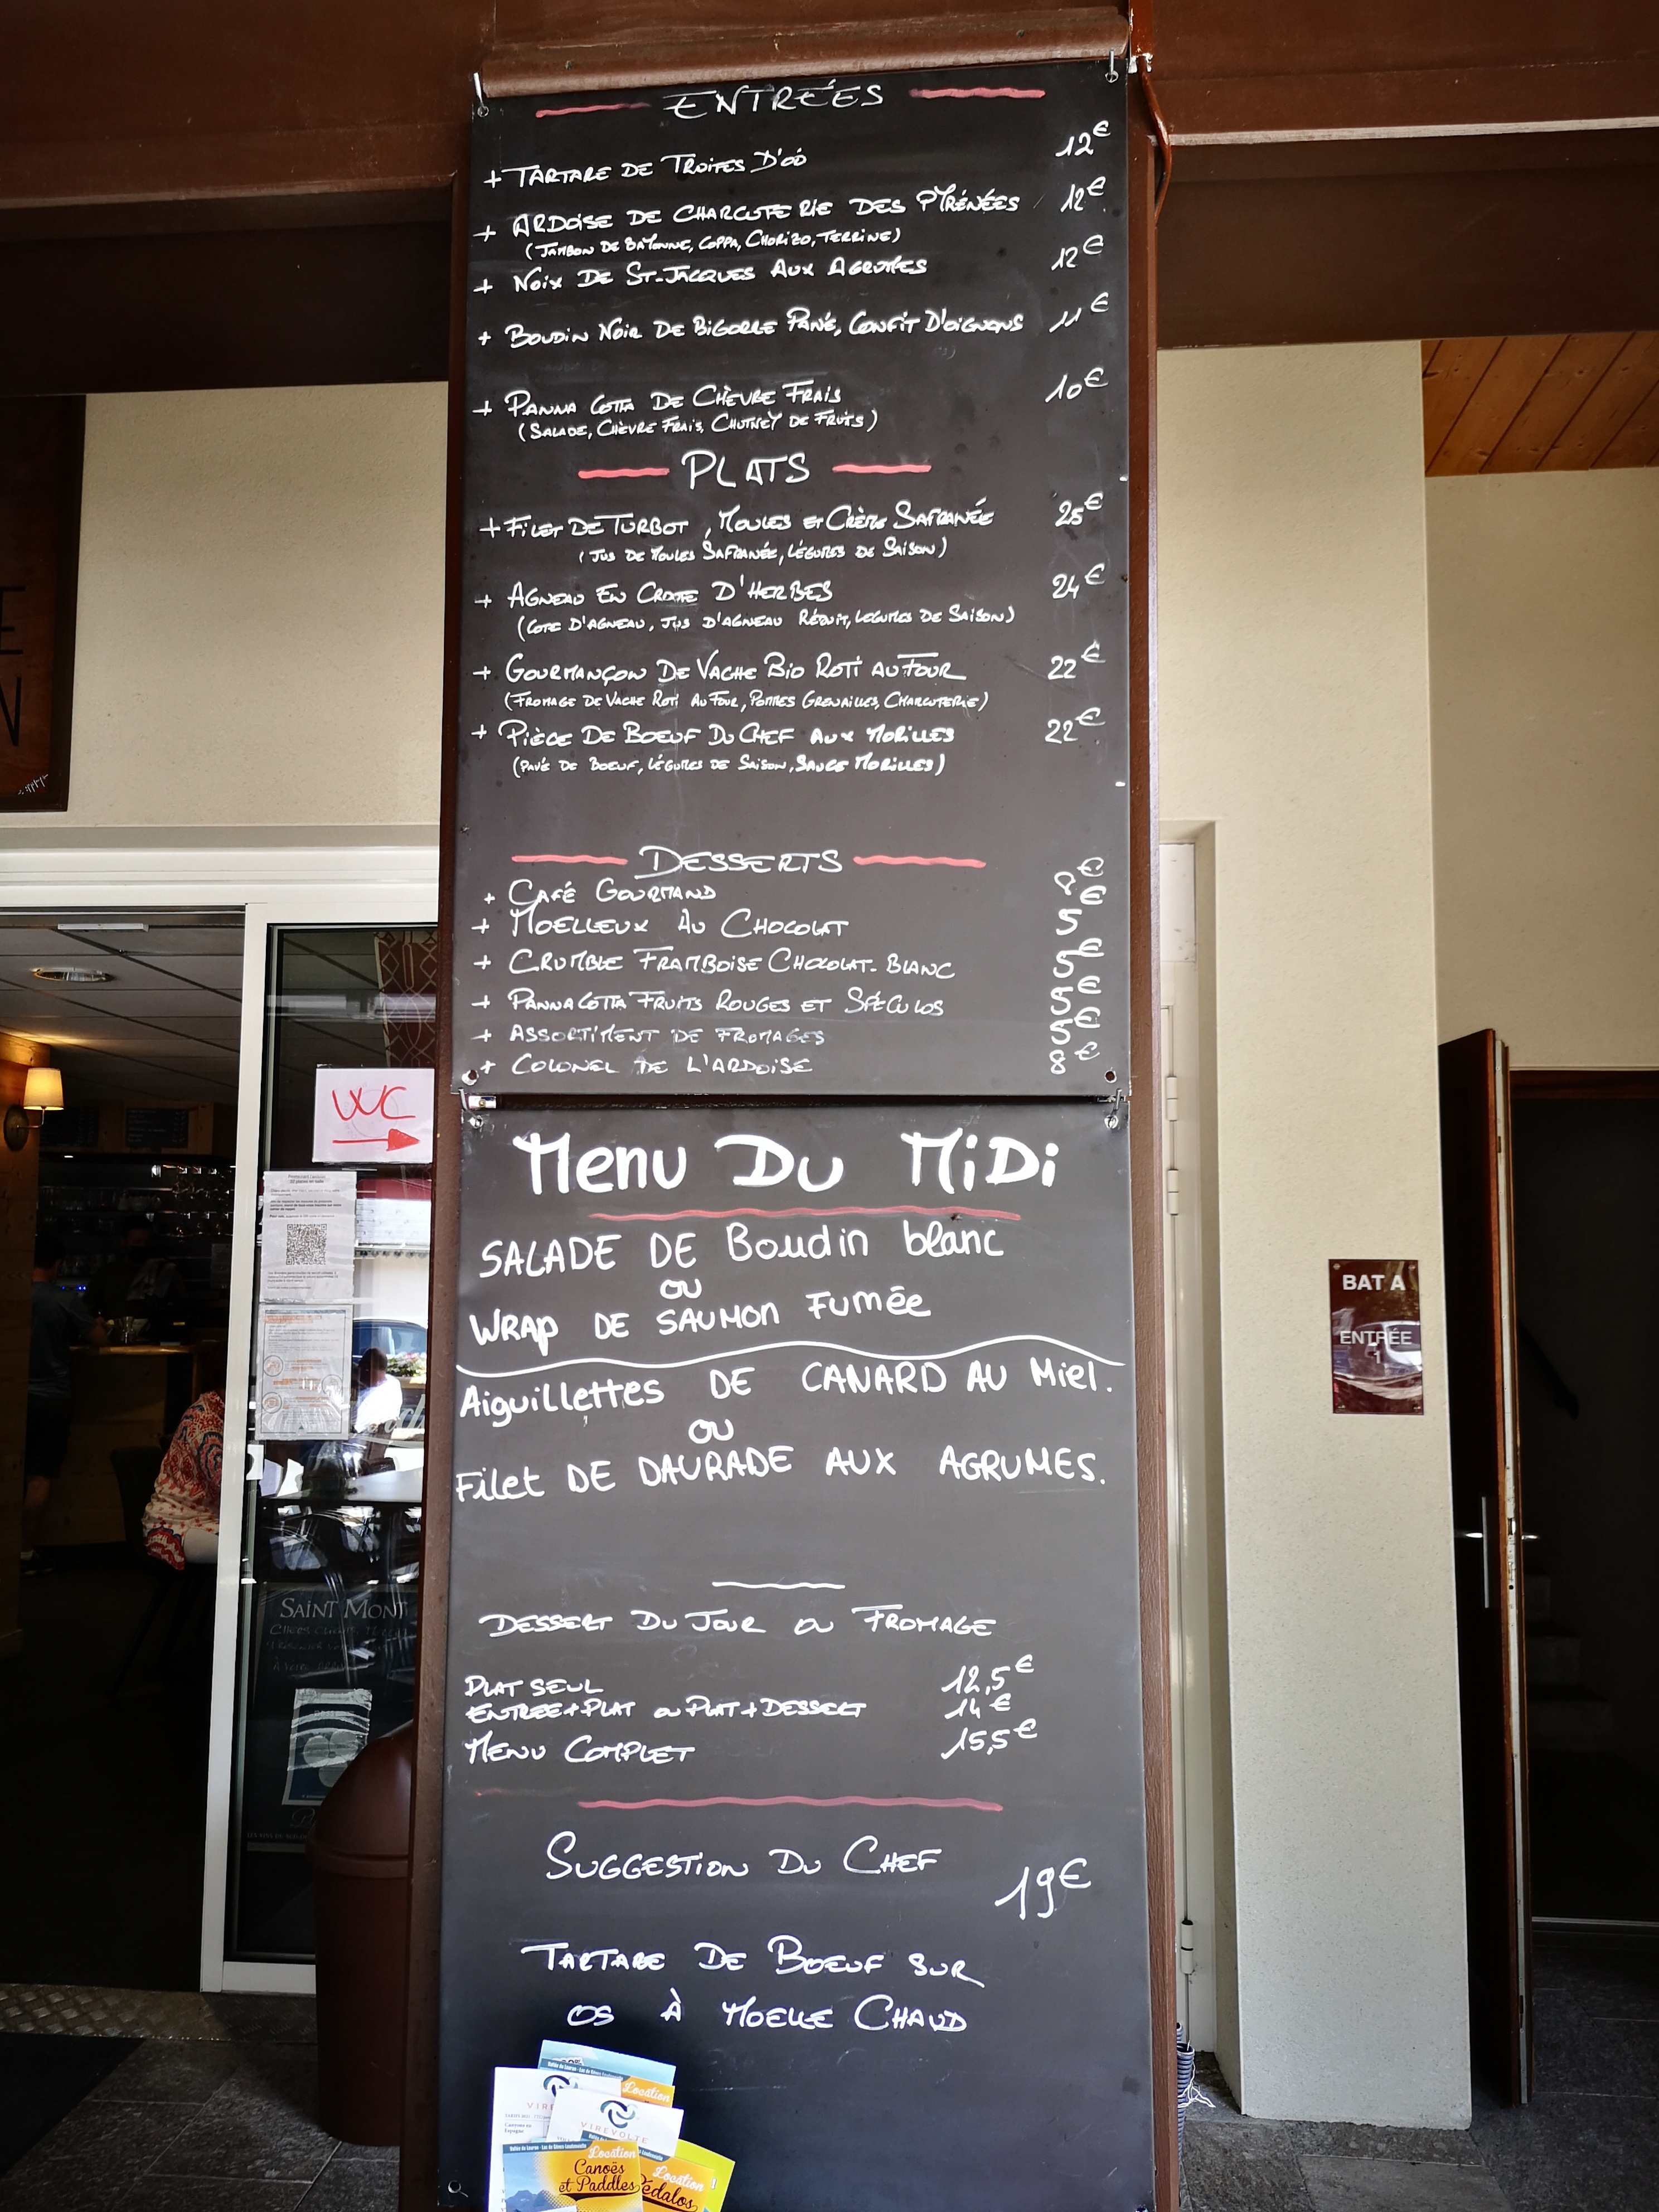 ENTRÉES
+ TARTARE DE TRUITES D'OÔ 12€
+ ARDOISE DE CHARCUTERIE DES PYRÉNÉES 12€
(JAMBON DE BAYONNE, COPPA, CHORIZO, TERRINE)
+ NOIX DE ST-JACQUES AUX AGRUMES 12€
+ BOUDIN NOIR DE BIGORRE PANÉ, CONFIT D'OIGNONS 11€
+ PANNA COTTA DE CHÈVRE FRAIS 10€
(SALADE, CHÈVRE FRAIS, CHUTNEY DE FRUITS)
PLATS
+ FILET DE TURBOT, MOULES ET CRÈME SAFRANÉE 25€
(JUS DE MOULES SAFRANÉE, LÉGUMES DE SAISON)
+ AGNEAU EN CROUTE D'HERBES 24€
(COTE D'AGNEAU, JUS D'AGNEAU RÉDUIT, LEGUMES DE SAISON)
+ GOURMANÇON DE VACHE BIO ROTI AU FOUR 22€
(FROMAGE DE VACHE ROTI AU FOUR, POMMES GRENAILLES, CHARCUTERIE)
+ PIÈCE DE BOEUF DU CHEF AUX MORILLES 22€
(PAVÉ DE BOEUF, LÉGUMES DE SAISON, SAUCE MORILLES)
DESSERTS
+ CAFÉ GOURMAND 8€
+ MOELLEUX AU CHOCOLAT 5€
+ CRUMBLE FRAMBOISE CHOCOLAT-BLANC 5€
+ PANNA COTTA FRUITS ROUGES ET SPÉCULOS 5€
+ ASSORTIMENT DE FROMAGES 5€
+ COLONEL DE L'ARDOISE 8€
WC
Menu DU MiDi
SALADE DE Boudin blanc
OU
WRAP DE SAUMON FUMée
Aiguillettes DE CANARD AU Miel.
OU
Filet DE DAURADE AUX AGRUMES.
DESSERT DU JOUR OU FROMAGE
PLAT SEUL 12,5€
ENTREE+PLAT OU PLAT+DESSERT 14€
MENU COMPLET 15,5€
SUGGESTION DU CHEF 19€
TARTARE DE BOEUF SUR
OS À MOELLE CHAUD
BAT A
ENTRÉE
1
SAINT MONT
Location
VIREVOLTE
Location
Canoës
et Paddles
Location
Pédalos